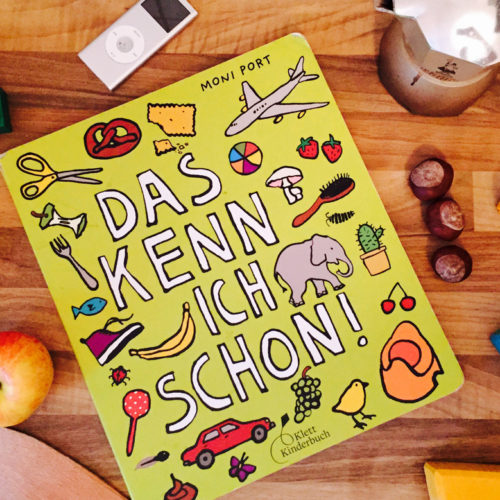 MONI PORT
DAS
KENN
ICH
SCHON!
Klett
Kinderbuch